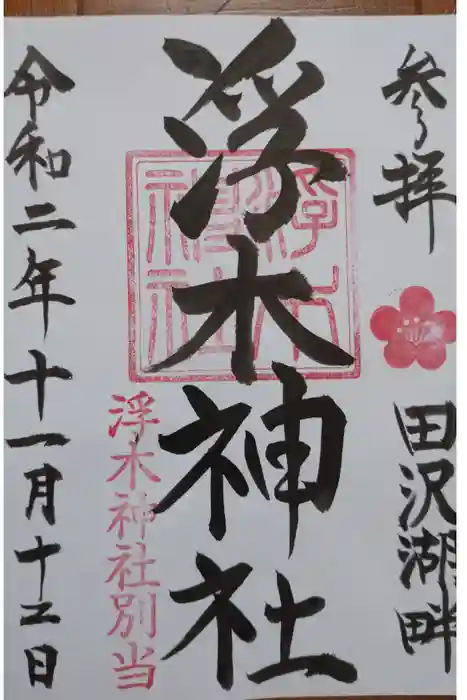 参拝
田沢湖畔
浮木神社
浮木神社
浮木神社別当
令和二年十一月十五日